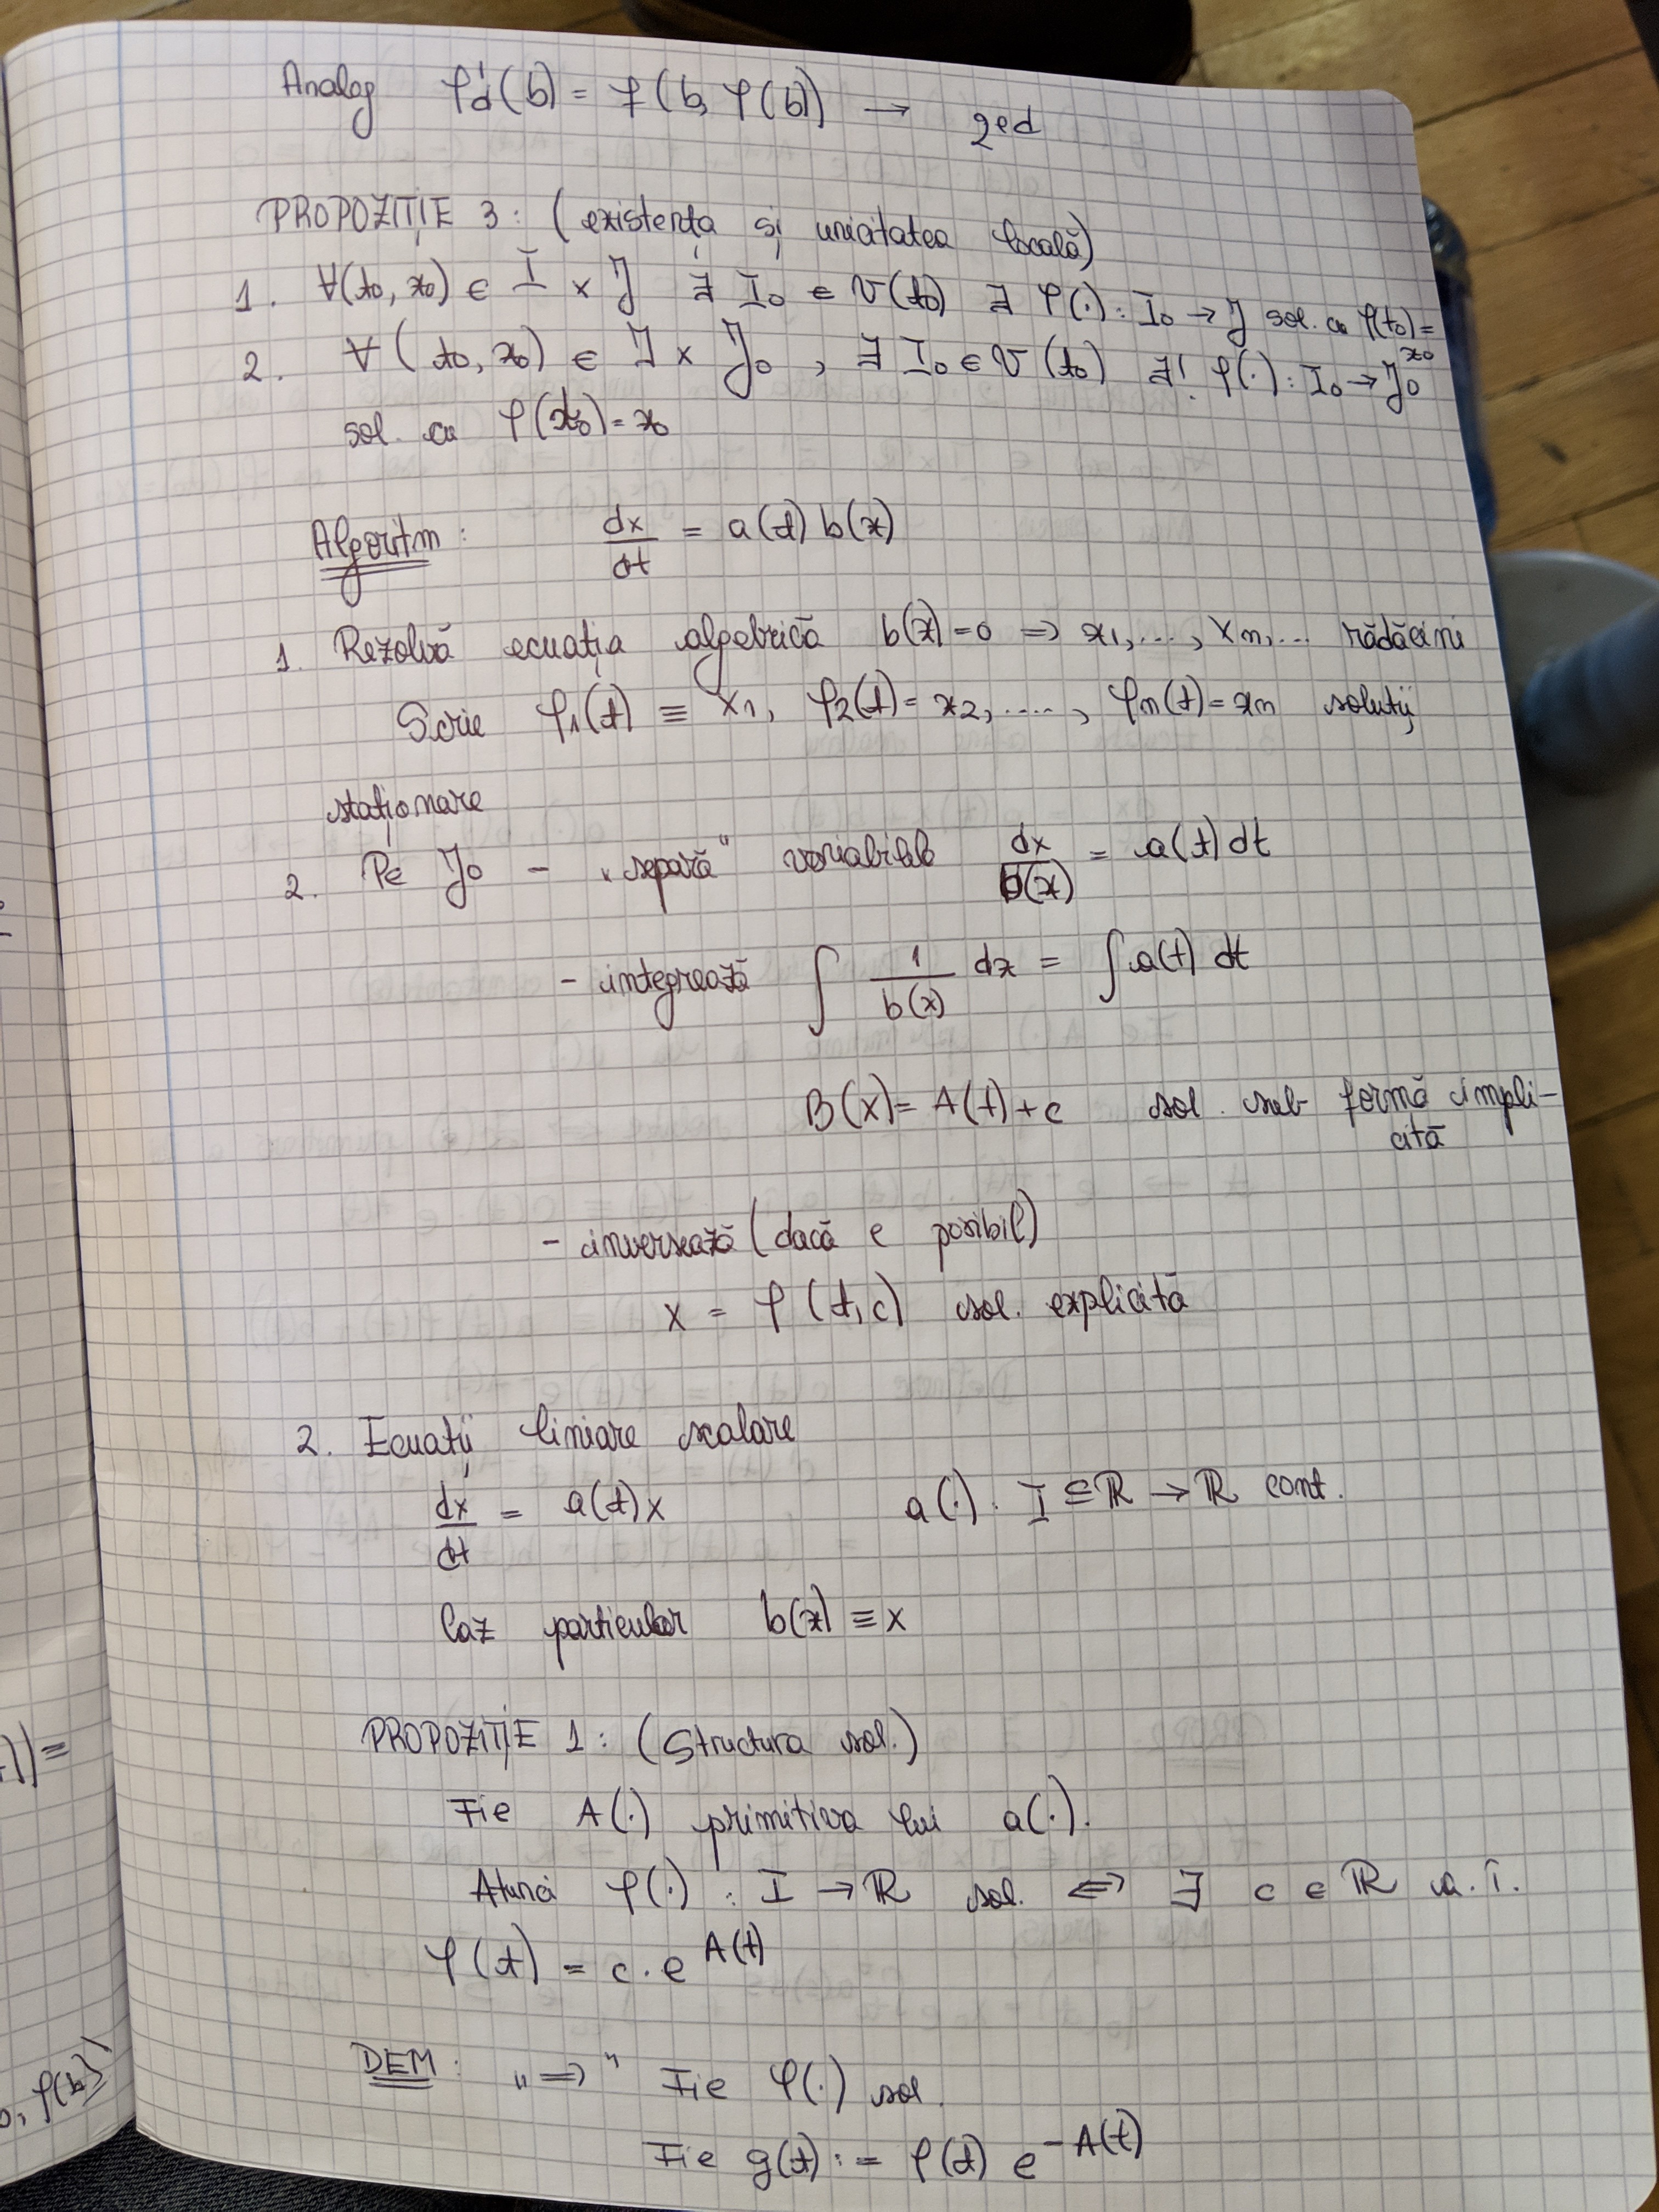 Analog φ'd(b) = f(b, φ(b)) → qed
PROPOZIȚIE 3: (existența și unicitatea locală)
1. ∀(t0, x0) ∈ I × J ∃ I0 ∈ V(t0) ∃ φ(·): I0 → J sol. cu φ(t0) = x0
2. ∀(t0, x0) ∈ I × J0, ∃ I0 ∈ V(t0) ∃! φ(·): I0 → J0
sol. cu φ(t0) = x0
Algoritm: dx/dt = a(t) b(x)
1. Rezolvă ecuația algebrică b(x) = 0 => x1, ..., xn, ... rădăcini
Scrie φ1(t) ≡ x1, φ2(t) = x2, ...., φn(t) = xn soluții
staționare
2. Pe J0 - „separă" variabilele dx/b(x) = a(t) dt
- integrează ∫ 1/b(x) dx = ∫ a(t) dt
B(x) = A(t) + c sol. sub formă impli-
cită
- inversează (dacă e posibil)
x = φ(t, c) sol. explicită
2. Ecuații liniare scalare
dx/dt = a(t) x a(·): I ⊆ ℝ → ℝ cont.
Caz particular b(x) ≡ x
PROPOZIȚIE 1: (Structura sol.)
Fie A(·) primitiva lui a(·).
Atunci φ(·): I → ℝ sol. <=> ∃ c ∈ ℝ a. î.
φ(t) = c · e^A(t)
DEM: „=>" Fie φ(·) sol.
Fie g(t) := φ(t) e^-A(t)
)) =
, φ(b))